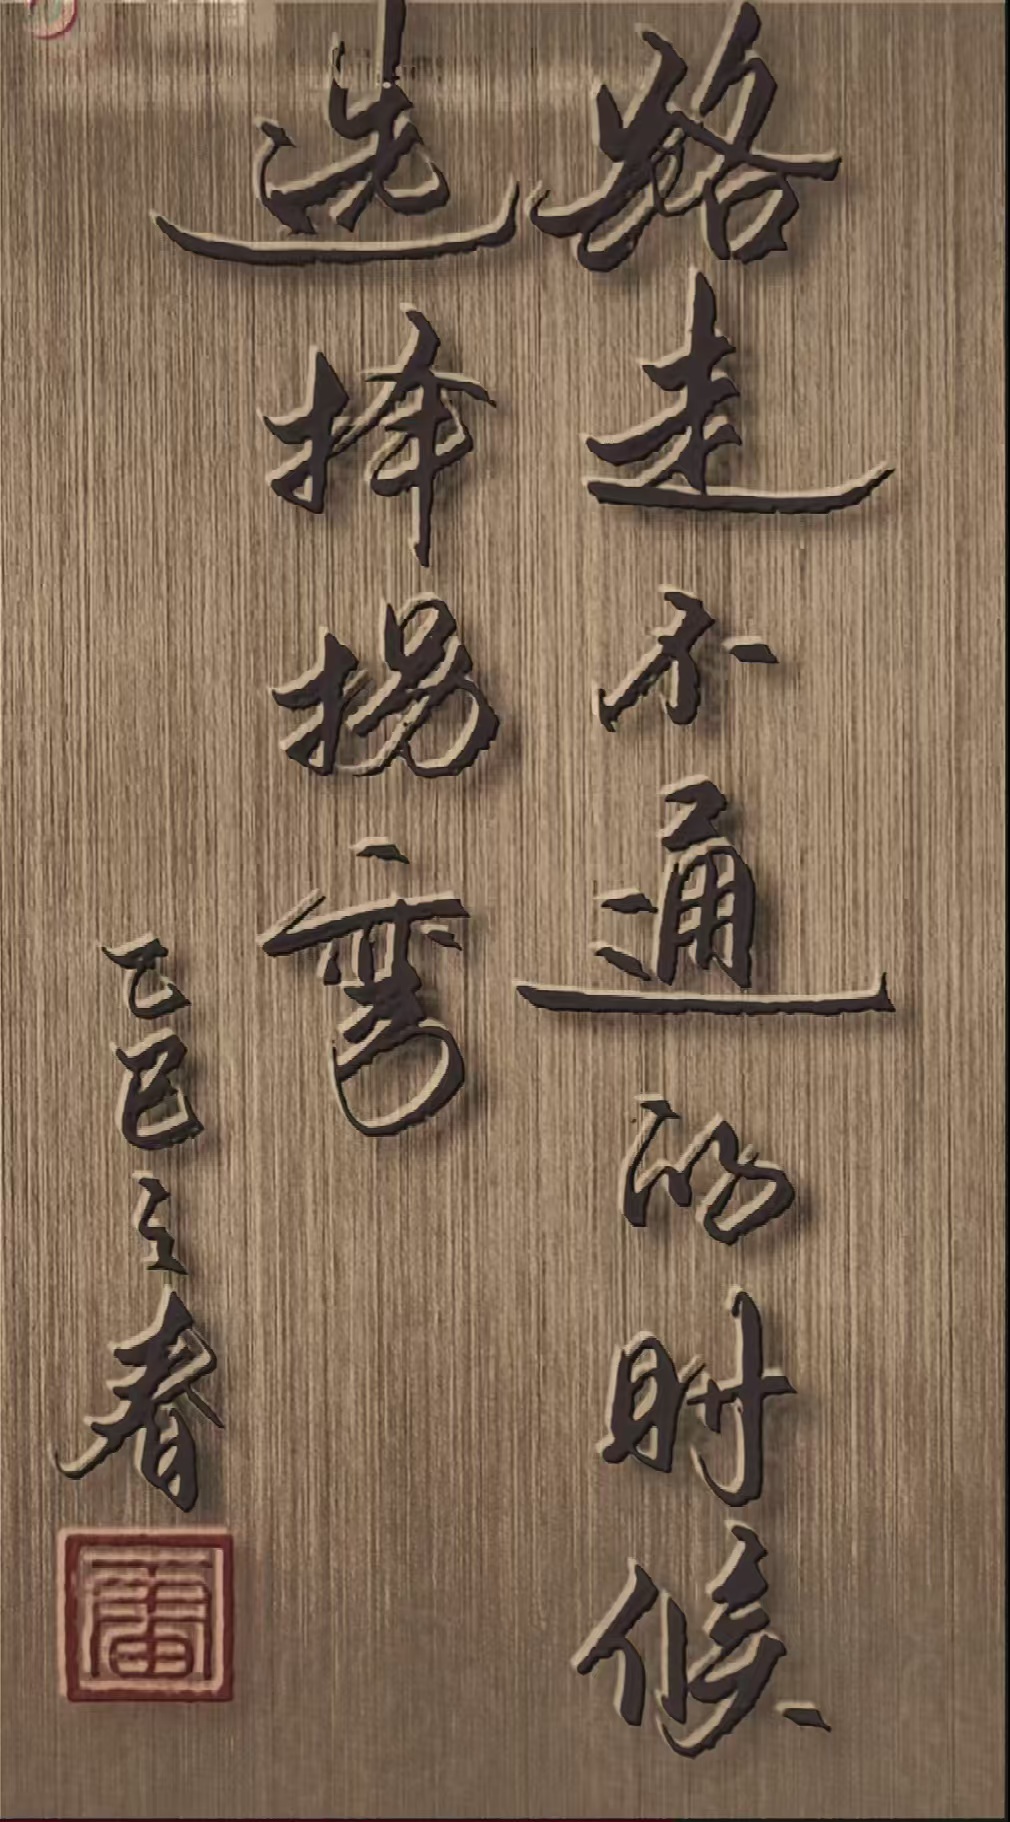 路走不通的时候
选择拐弯
乙巳之春